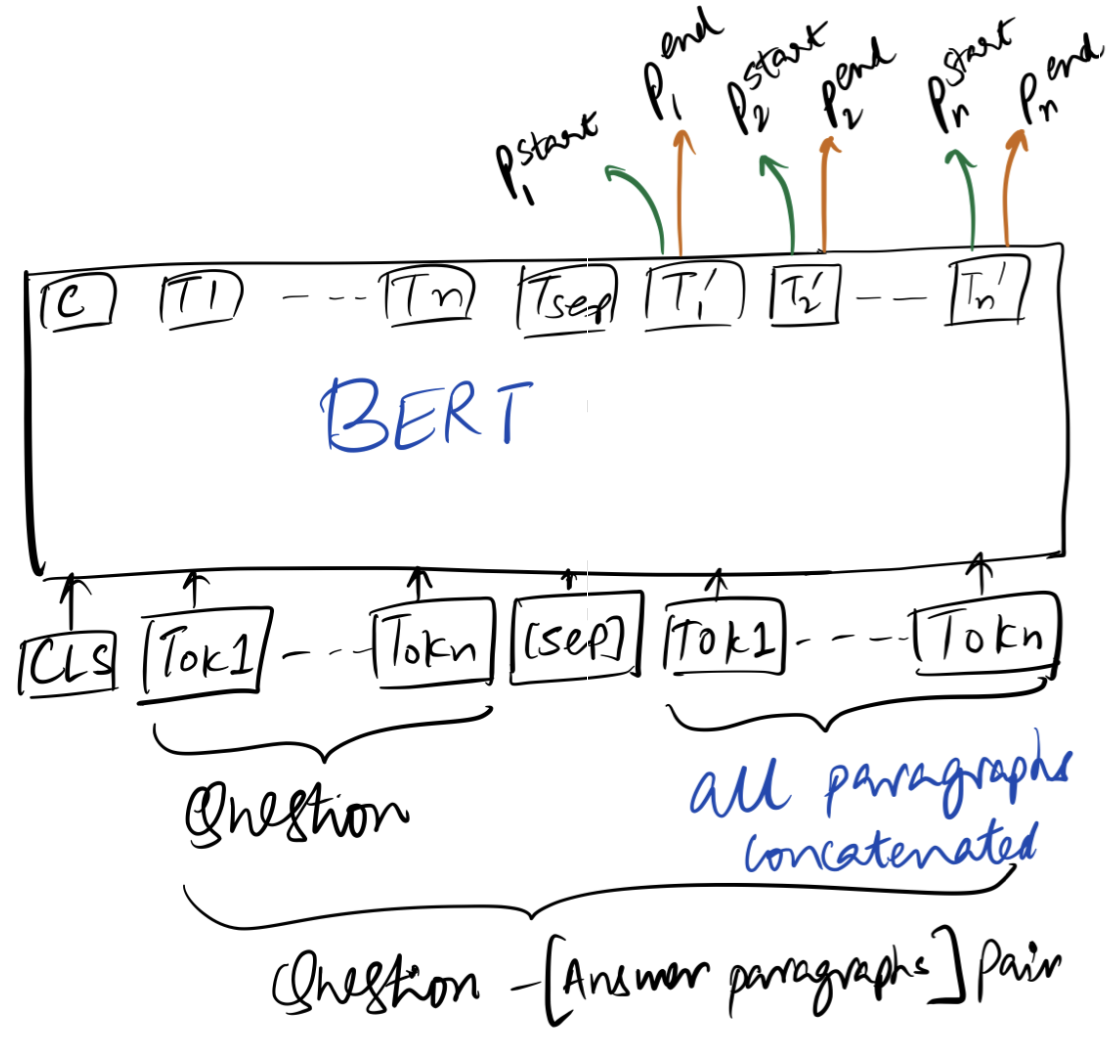 P₁^start P₁^end P₂^start P₂^end Pₙ^start Pₙ^end
C T1 --- Tn Tsep T₁′ T₂′ -- Tₙ′
BERT
CLS Tok1 --- Tokn [sep] Tok1 ---- Tokn
Question all paragraphs
concatenated
Question - [Answer paragraphs] Pair